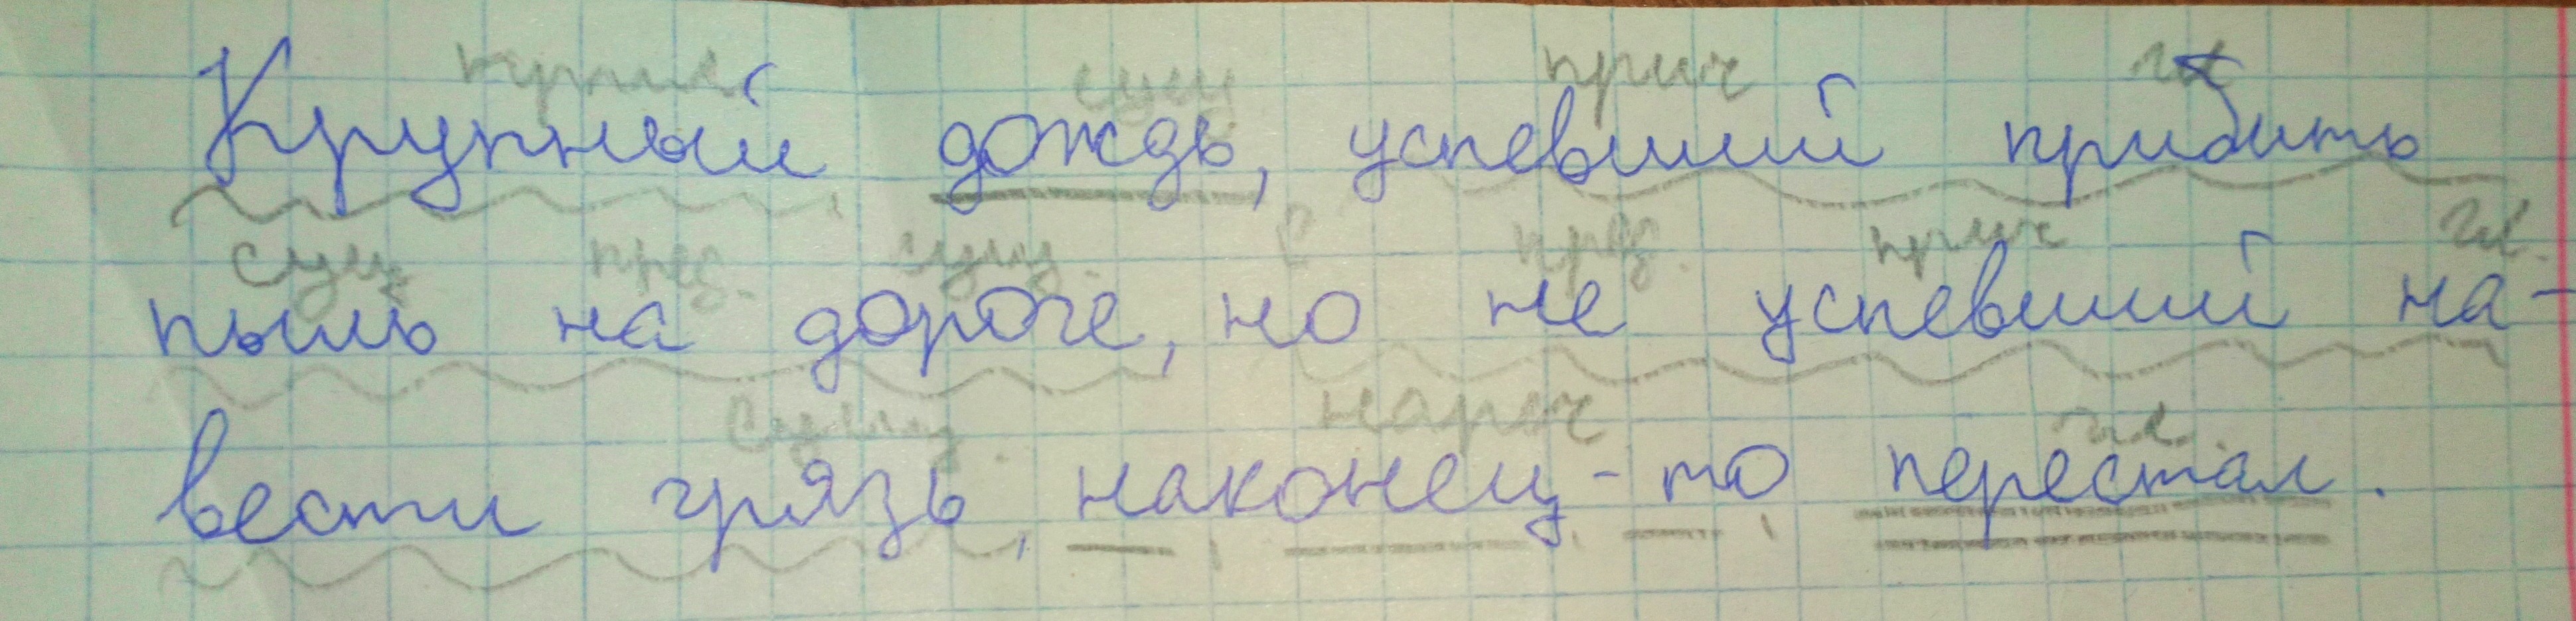 прил. сущ прич гл
Крупный дождь, успевший прибить
сущ пред. сущ. пред. прич гл.
пыль на дороге, но не успевший на-
сущ. нареч гл.
вести грязь, наконец-то перестал.